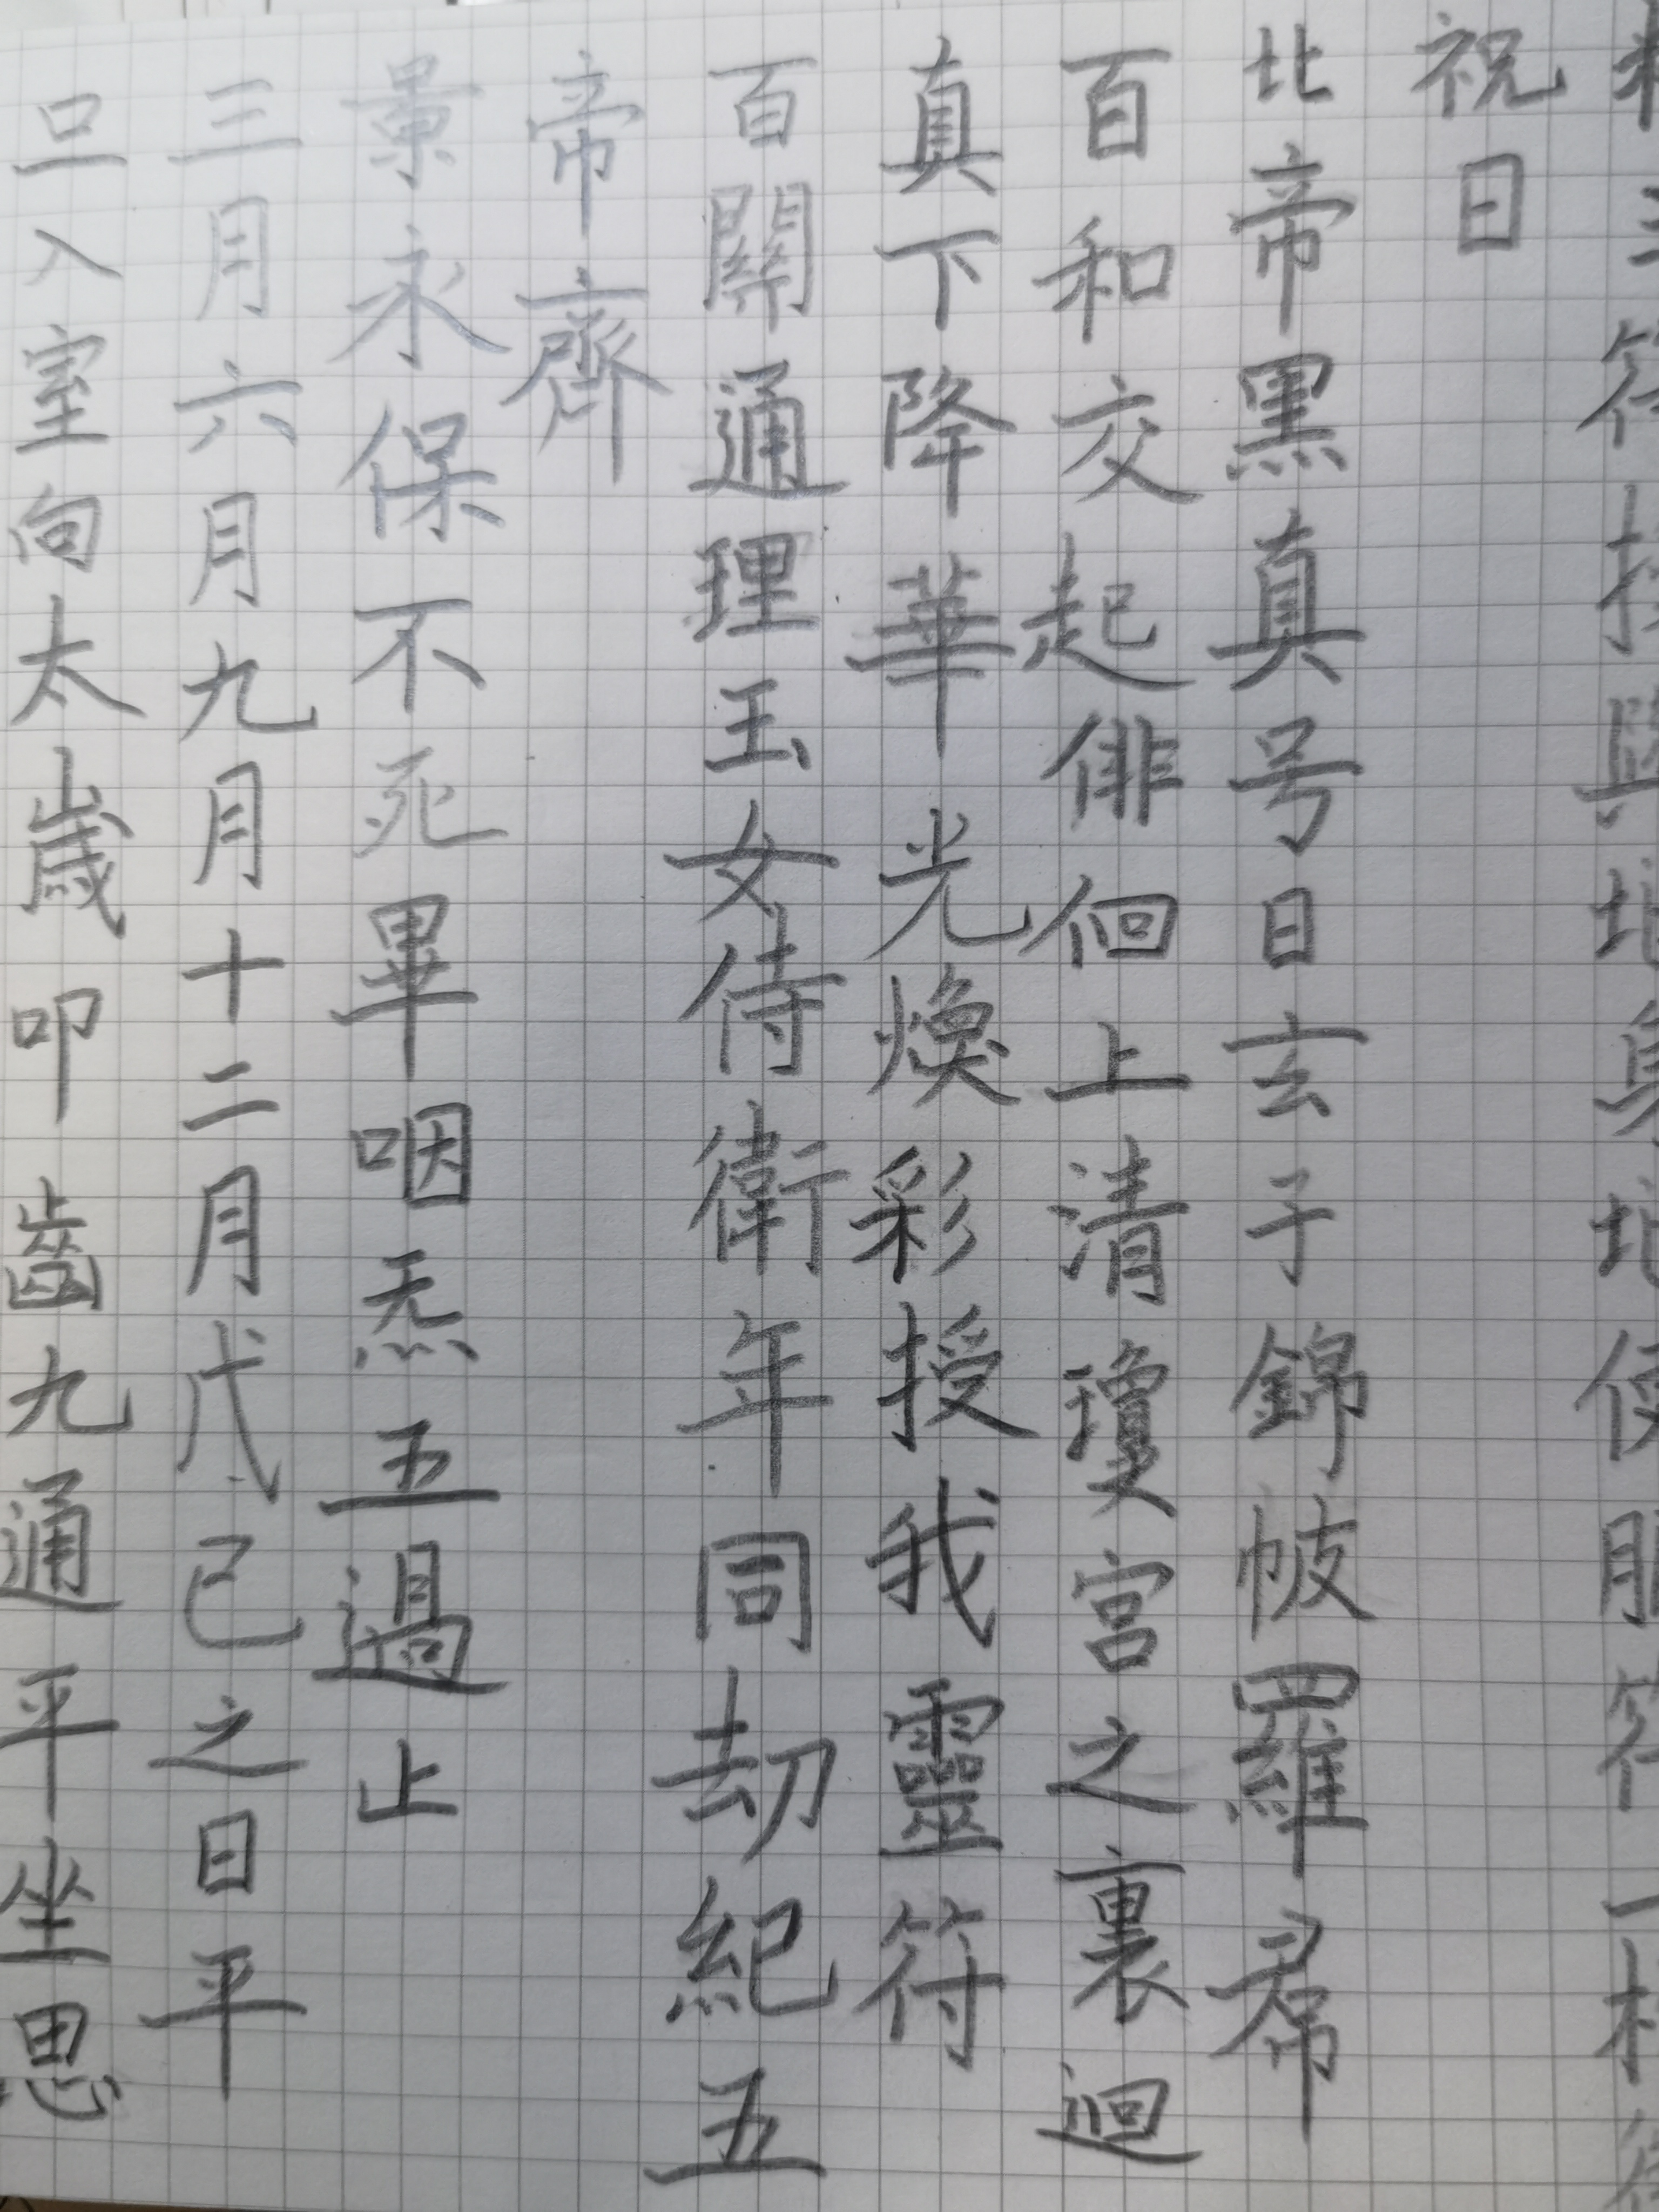 三符投與地魚地使服符一枚
祝曰
北帝黑真号曰玄子錦帔羅帬
百和交起俳佪上清瓊宮之裏迴
真下降華光煥彩授我靈符
百關通理玉女侍衛年同劫紀五
帝齊
景永保不死畢咽炁五過止
三月六月九月十二月戊己之日平
旦入室向太歲叩齒九通平坐思